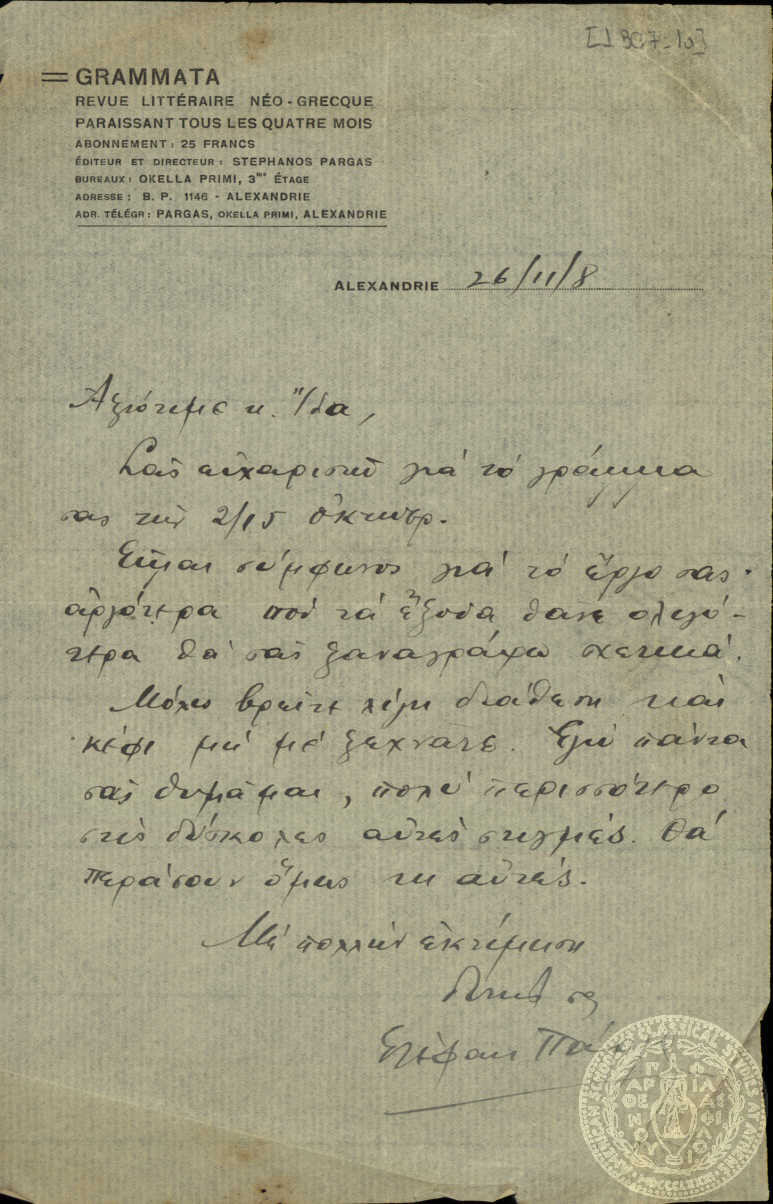 GRAMMATA
REVUE LITTÉRAIRE NÉO-GRECQUE
PARAISSANT TOUS LES QUATRE MOIS
ABONNEMENT: 25 FRANCS
ÉDITEUR ET DIRECTEUR: STEPHANOS PARGAS
BUREAUX: OKELLA PRIMI, 3me ÉTAGE
ADRESSE: B. P. 1146 - ALEXANDRIE
ADR. TÉLÉGR: PARGAS, OKELLA PRIMI, ALEXANDRIE
ALEXANDRIE 26/11/8
Ἀξιότιμε κ. Ἴδα,
Σᾶς εὐχαριστῶ γιά τό γράμμα
σας τῆς 2/15 Ὀκτωβρ.
Εἶμαι σύμφωνος γιά τό ἔργο σας·
ἀργότερα πού τά ἔξοδα θἆναι ὀλιγό-
τερα θά σᾶς ξαναγράψω σχετικά.
Μόλις βρεῖτε λίγη διάθεση καί
κέφι μή μέ ξεχνᾶτε. Ἐγώ πάντα
σᾶς θυμᾶμαι, πολύ περισσότερο
στίς δύσκολες αὐτές στιγμές. Θά
περάσουν ὅμως κι αὐτές.
Μέ πολλήν ἐκτίμηση
δικός σας
Στέφανος Πάργας
AMERICAN SCHOOL OF CLASSICAL STUDIES AT ATHENS
ΠΑΡΘΕΝΟΥ ΦΙΛΙΑΣ
MDCCCLXXXI